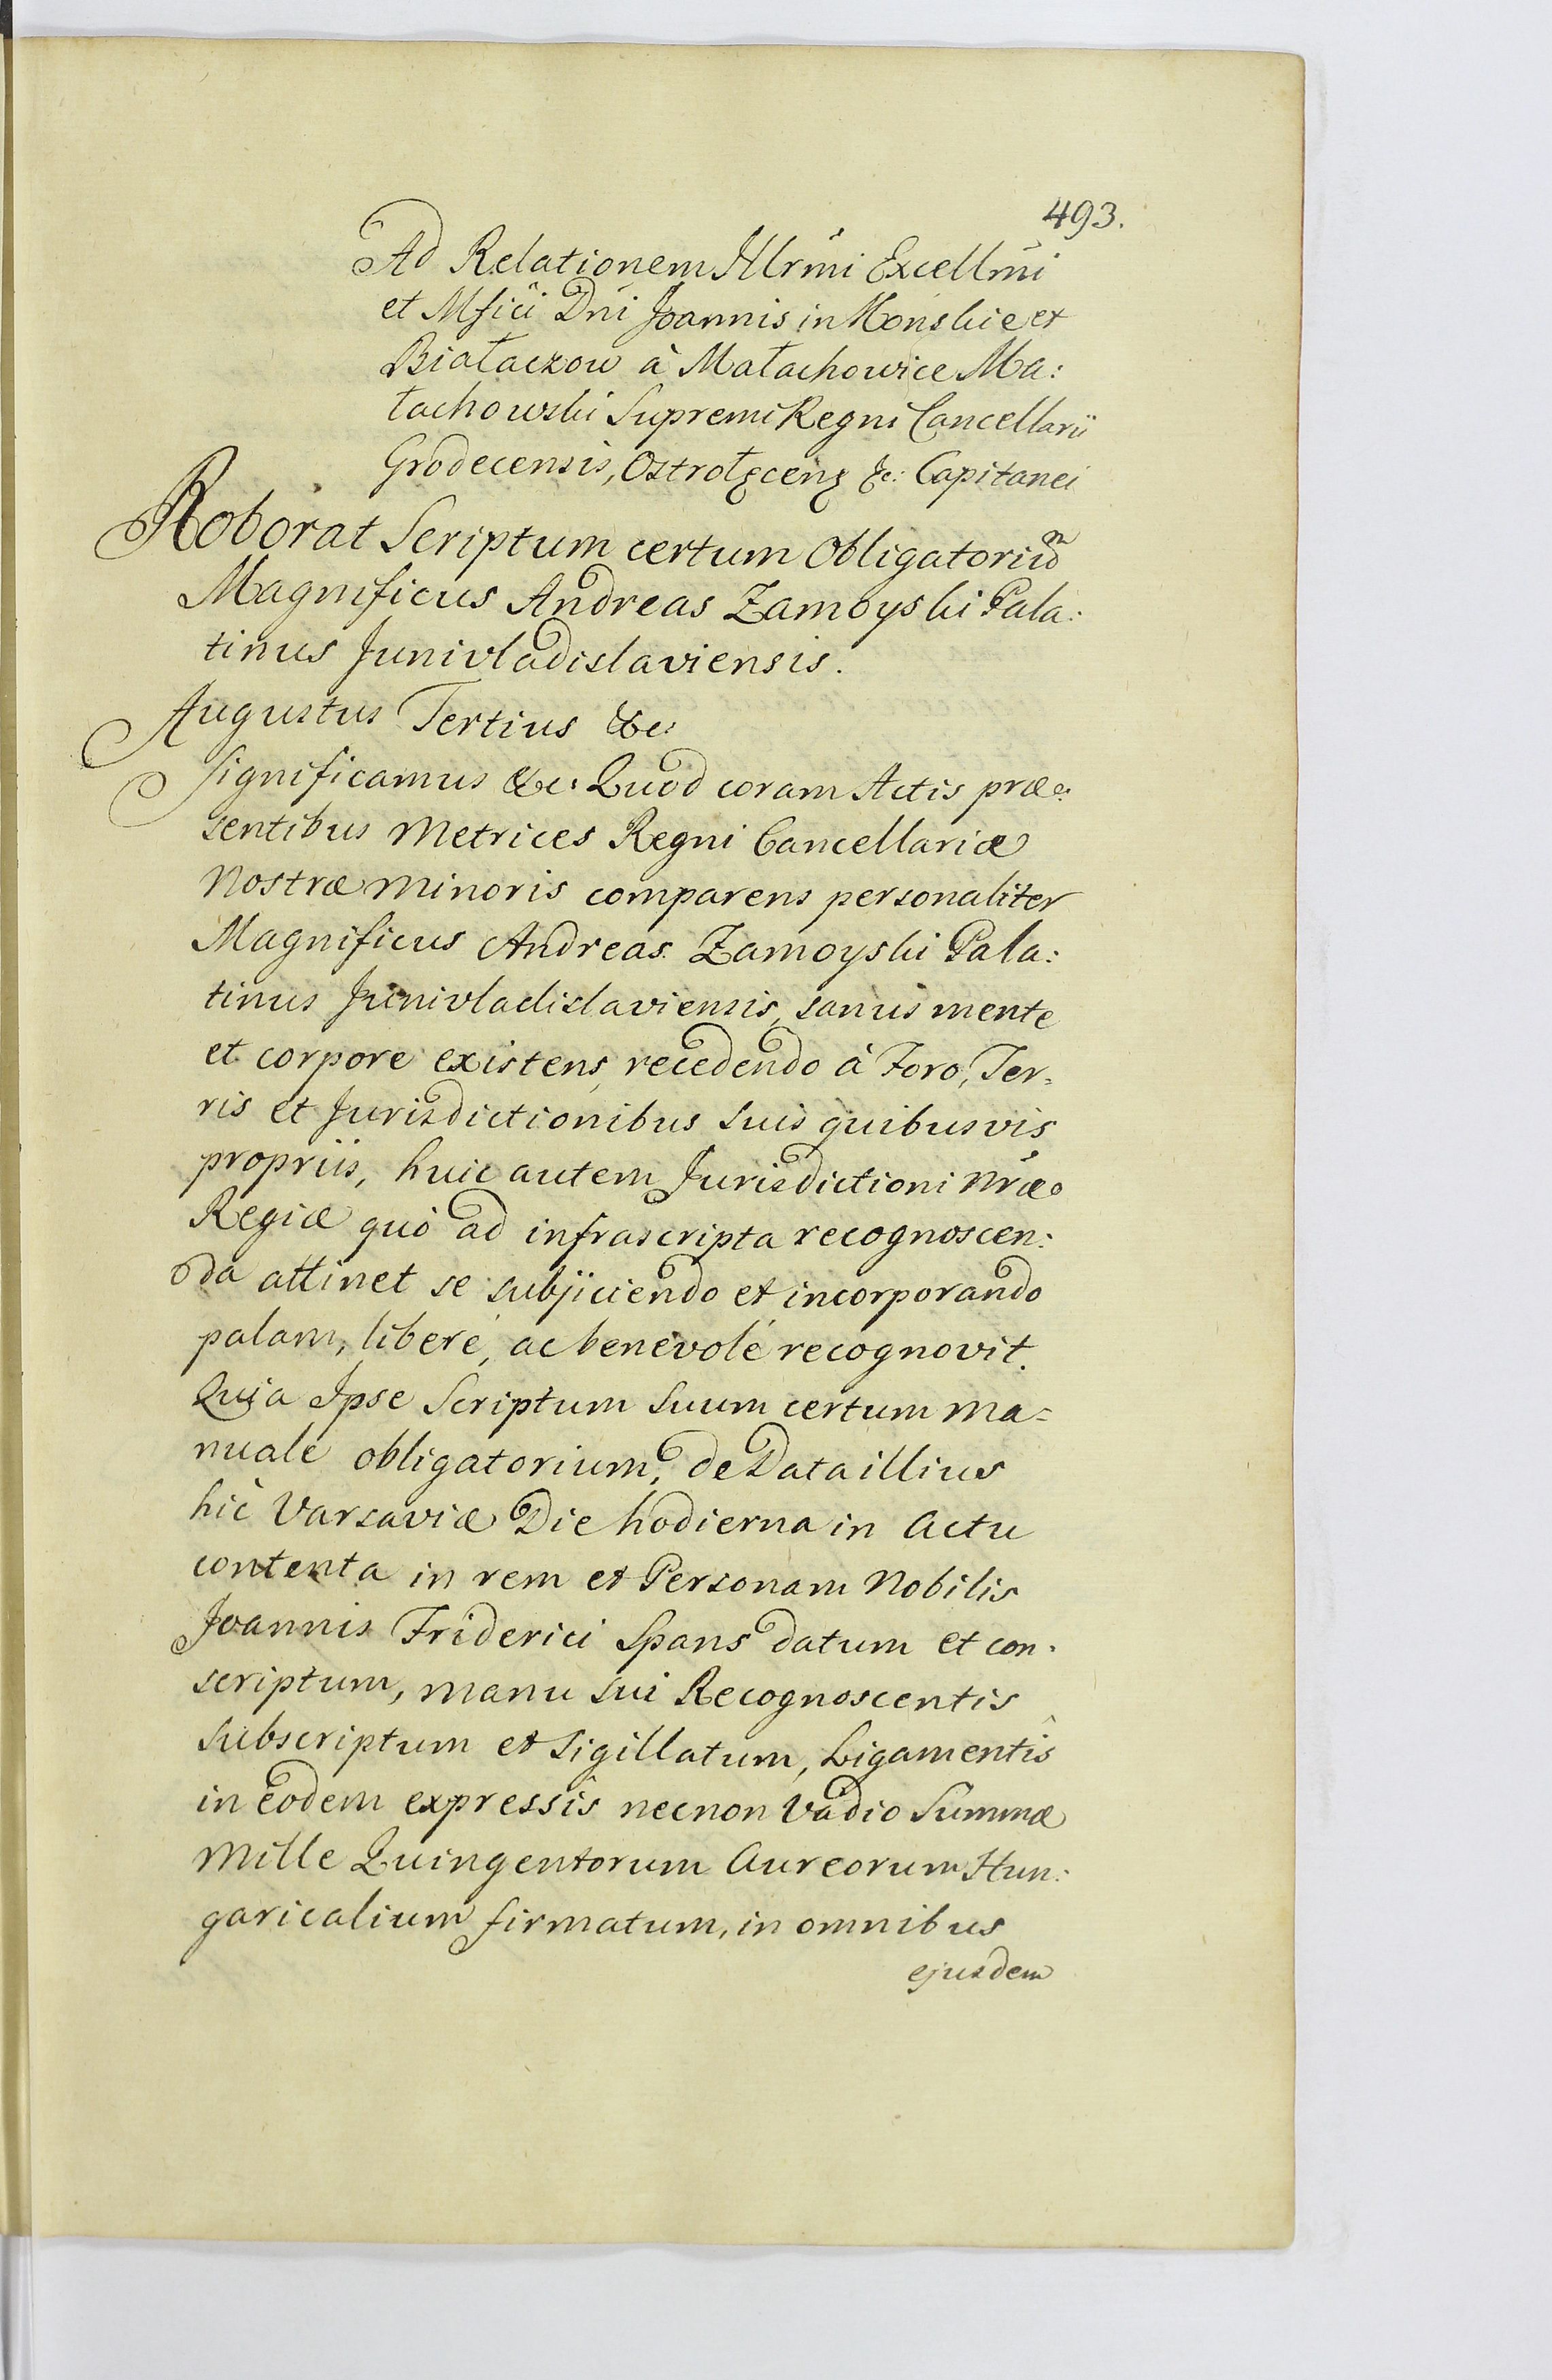 493.
Ad Relationem Illrmi Excellmi
et Mfici Dni Joannis in Końskie et
Białaczow à Małachowice Ma:
łachowski Supremi Regni Cancellarii
Grodecensis, Ostrołęcens &c: Capitanei
Roborat Scriptum certum Obligatoriũ
Magnificus Andreas Zamoyski Pala:
tinus Junivladislaviensis.
Augustus Tertius &c:
Significamus &c: Quod coram Actis præ:
sentibus Metrices Regni Cancellariæ
Nostræ Minoris comparens personaliter
Magnificus Andreas Zamoyski Pala:
tinus Junivladislaviensis, sanus mente
et corpore existens, recedendo à Foro, Ter-
ris et Jurisdictionibus suis quibusvis
propriis, huic autem Jurisdictioni Nræ
Regiæ quò ad infrascripta recognoscen:
da attinet se subjiciendo et incorporando
palam, liberé, ac benevolé recognovit.
Quia Ipse Scriptum Suum certum Ma=
nuale obligatorium, de Data illius
hic Varsaviæ Die hodierna in Actu
contenta in rem et Personam Nobilis
Joannis Friderici Spans datum et con-
scriptum, manu sui Recognoscentis
subscriptum et sigillatum, Ligamentis
in eodem expressis necnon Vadio Summæ
Mille Quingentorum Aureorum Hun:
garicalium firmatum, in omnibus
ejusdem